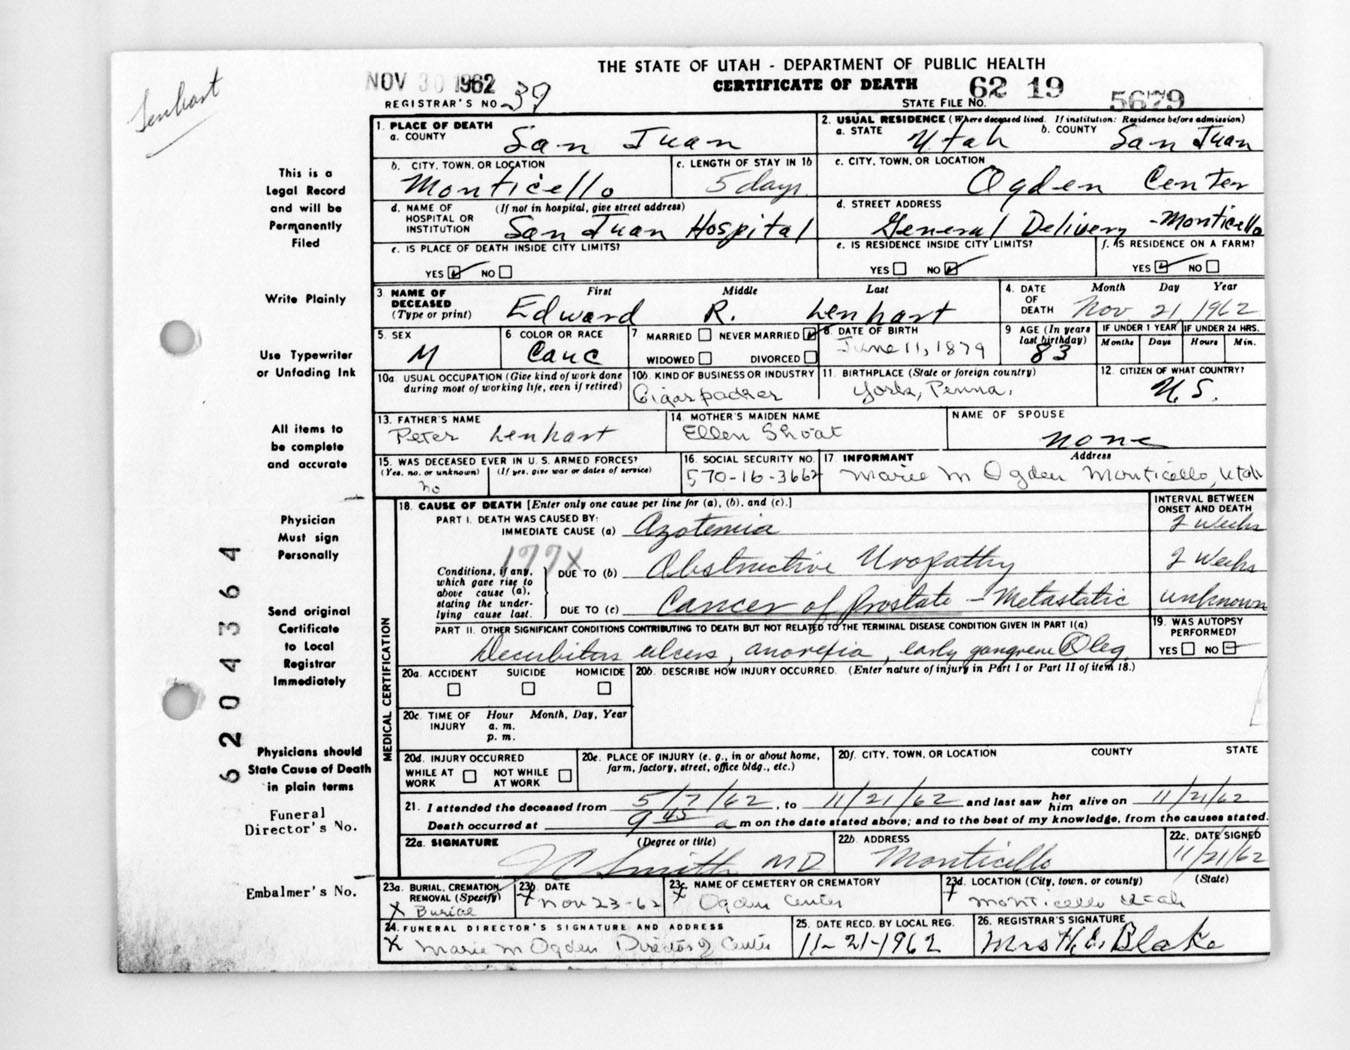 Lenhart
THE STATE OF UTAH - DEPARTMENT OF PUBLIC HEALTH
CERTIFICATE OF DEATH
NOV 30 1962
REGISTRAR'S NO. 39
STATE FILE NO. 62 19 5679
This is a
Legal Record
and will be
Permanently
Filed
Write Plainly
Use Typewriter
or Unfading Ink
All items to
be complete
and accurate
Physician
Must sign
Personally
Send original
Certificate
to Local
Registrar
Immediately
Physicians should
State Cause of Death
in plain terms
Funeral
Director's No.
Embalmer's No.
6204364
1. PLACE OF DEATH
a. COUNTY San Juan
2. USUAL RESIDENCE (Where deceased lived. If institution: Residence before admission)
a. STATE Utah b. COUNTY San Juan
b. CITY, TOWN, OR LOCATION
Monticello
c. LENGTH OF STAY IN 1b
5 days
c. CITY, TOWN, OR LOCATION
Ogden Center
d. NAME OF HOSPITAL OR INSTITUTION (If not in hospital, give street address)
San Juan Hospital
d. STREET ADDRESS
General Delivery - Monticello
e. IS PLACE OF DEATH INSIDE CITY LIMITS?
YES NO
e. IS RESIDENCE INSIDE CITY LIMITS?
YES NO
f. IS RESIDENCE ON A FARM?
YES NO
3 NAME OF DECEASED (Type or print)
First Middle Last
Edward R. Lenhart
4. DATE OF DEATH
Month Day Year
Nov 21 1962
5. SEX
M
6 COLOR OR RACE
Cauc
7 MARRIED NEVER MARRIED
WIDOWED DIVORCED
8. DATE OF BIRTH
June 11, 1879
9 AGE (In years last birthday)
83
IF UNDER 1 YEAR IF UNDER 24 HRS.
Months Days Hours Min.
10a. USUAL OCCUPATION (Give kind of work done during most of working life, even if retired)
10b. KIND OF BUSINESS OR INDUSTRY
Cigar packer
11. BIRTHPLACE (State or foreign country)
York, Penna.
12. CITIZEN OF WHAT COUNTRY?
U.S.
13. FATHER'S NAME
Peter Lenhart
14. MOTHER'S MAIDEN NAME
Ellen Shoat
NAME OF SPOUSE
none
15. WAS DECEASED EVER IN U.S. ARMED FORCES?
(Yes, no. or unknown) (If yes, give war or dates of service)
no
16. SOCIAL SECURITY NO.
570-16-3662
17. INFORMANT Address
Marie M Ogden Monticello, Utah
18. CAUSE OF DEATH [Enter only one cause per line for (a), (b), and (c).]
INTERVAL BETWEEN ONSET AND DEATH
PART I. DEATH WAS CAUSED BY:
IMMEDIATE CAUSE (a) Azotemia 2 weeks
177X
Conditions, if any, which gave rise to above cause (a), stating the underlying cause last.
DUE TO (b) Obstructive Uropathy 2 weeks
DUE TO (c) Cancer of Prostate - Metastatic unknown
PART II. OTHER SIGNIFICANT CONDITIONS CONTRIBUTING TO DEATH BUT NOT RELATED TO THE TERMINAL DISEASE CONDITION GIVEN IN PART I(a)
Decubitus ulcers, anorexia, early gangrene R leg
19. WAS AUTOPSY PERFORMED?
YES NO
MEDICAL CERTIFICATION
20a. ACCIDENT SUICIDE HOMICIDE
20b. DESCRIBE HOW INJURY OCCURRED. (Enter nature of injury in Part I or Part II of item 18.)
20c. TIME OF INJURY Hour Month, Day, Year
a. m.
p. m.
20d. INJURY OCCURRED
WHILE AT WORK NOT WHILE AT WORK
20e. PLACE OF INJURY (e. g., in or about home, farm, factory, street, office bldg., etc.)
20f. CITY, TOWN, OR LOCATION COUNTY STATE
21. I attended the deceased from 5/7/62, to 11/21/62 and last saw her him alive on 11/21/62
Death occurred at 9 45 a m on the date stated above; and to the best of my knowledge, from the causes stated.
22a. SIGNATURE (Degree or title)
J C Smith MD
22b. ADDRESS
Monticello
22c. DATE SIGNED
11/21/62
23a. BURIAL, CREMATION, REMOVAL (Specify)
X Burial
23b. DATE
X Nov 23-62
23c. NAME OF CEMETERY OR CREMATORY
X Ogden Center
23d. LOCATION (City, town, or county) (State)
X Monticello Utah
24. FUNERAL DIRECTOR'S SIGNATURE AND ADDRESS
X Marie M Ogden Director of Center
25. DATE RECD. BY LOCAL REG.
11-21-1962
26. REGISTRAR'S SIGNATURE
Mrs H. E. Blake